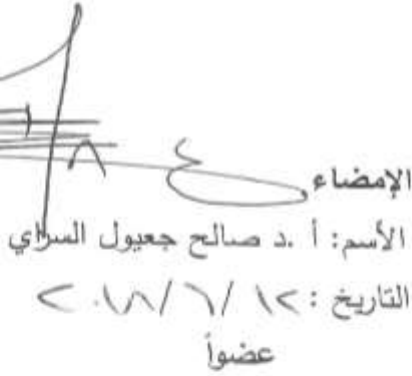 الإمضاء
الأسم: أ .د صالح جعيول السراي
التاريخ : ١٢ / ٦ / ٢٠١٨
عضواً